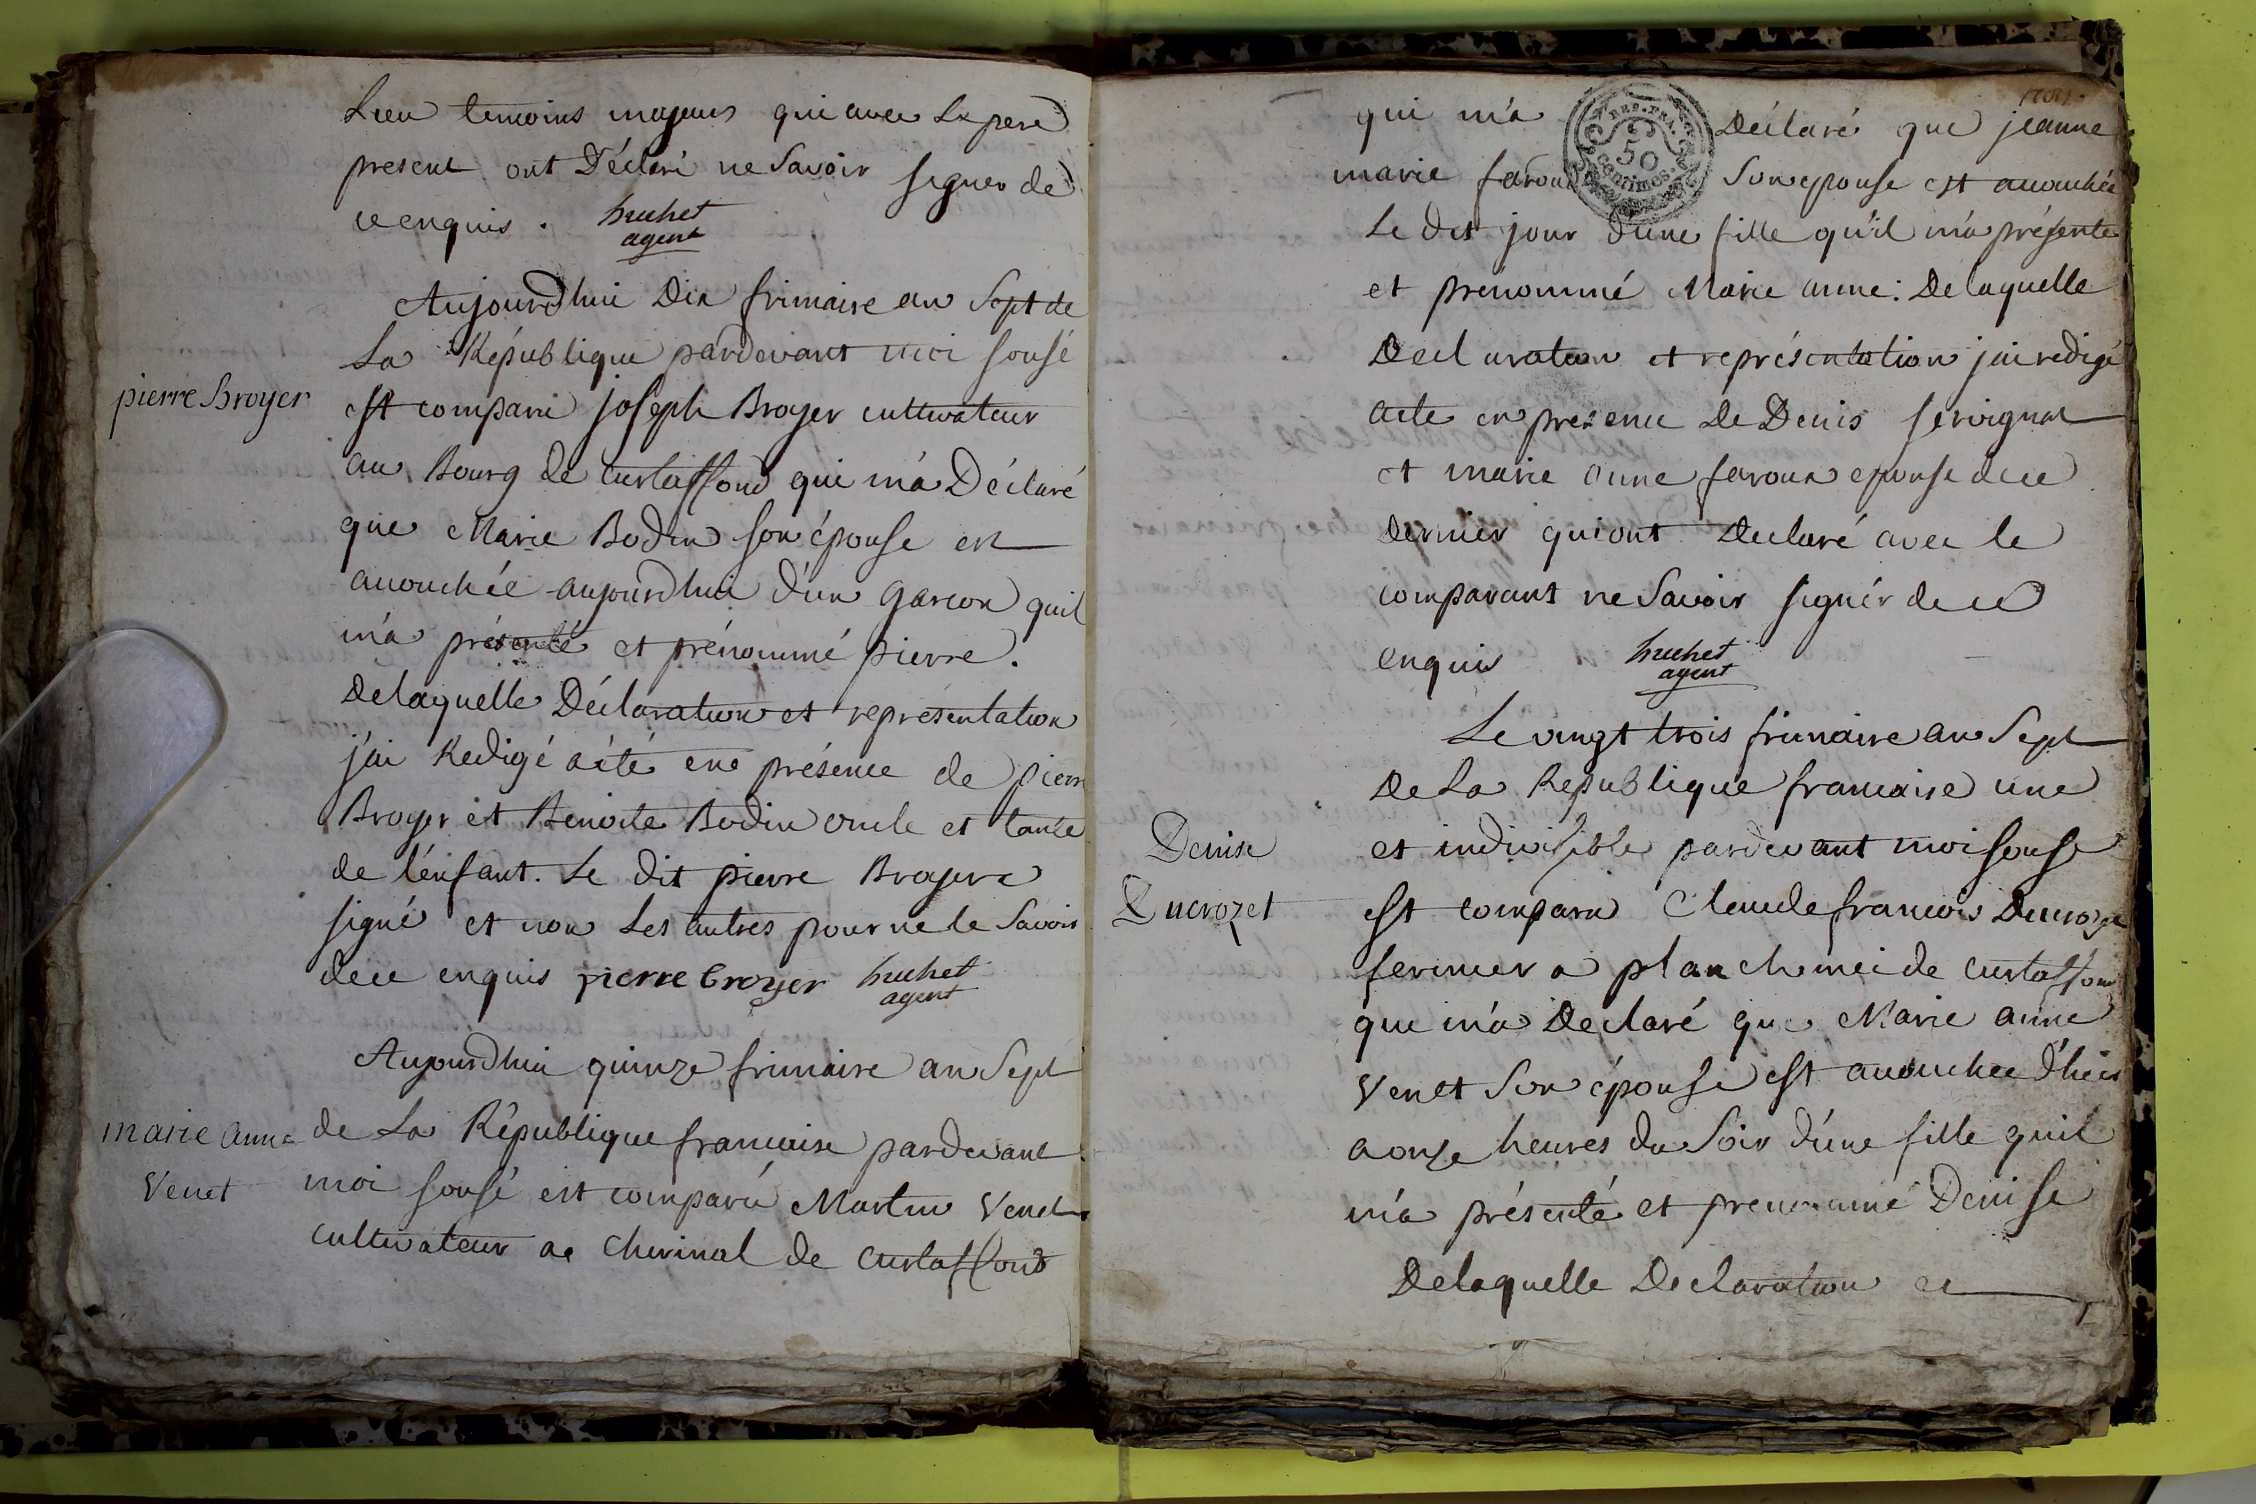 Lieu temoins majeurs qui avec Le pere
present ont Déclaré ne Savoir signer de
ce enquis . huchet
agent
Aujourdhui Dix frimaire an Sept de
La République pardevant moi sousé
pierre Broyer
est comparu joseph Broyer cultivateur
au Bourg de Curtaffond qui m'a Déclaré
que Marie Bodin son épouse est
accouchée aujourdhui d'un garcon quil
m'a présenté et prénommé pierre.
Delaquelle Déclaration et représentation
j'ai Redigé acte en présence de pierre
Broyer et Benoite Bodin oncle et tante
de l'enfant. Le dit pierre Broyer a
signé et non Les autres pour ne le Savoir
dece enquis pierre broyer huchet
agent
Aujourdhui quinze frimaire an Sept
marie anne
Venet
de La République francaise pardevant
moi sousé est comparu Martin Venet
cultivateur a Cherinal de Curtaffond
qui m'a Déclaré que jeanne
REP. FRA.
50
centimes
marie Son epouse est accouchée
Le dit jour d'une fille qu'il m'a présenté
et prénommé Marie anne. Delaquelle
Declaration et représentation j'ai redigé
acte en presence de Denis servignat
et marie anne faroux epouse de ce
dernier qui ont Declaré avec le
comparant ne Savoir signér de ce
enquis huchet
agent
Le vingt trois frimaire an Sept
De La Republique francaise une
Denise
Ducrozet
et indivisible pardevant moi sousé
est comparu Claude francois Ducrozet
fermier a planchemei de Curtaffond
que m'a Declaré que Marie anne
Venet Son épouse est accouchee d'hier
a onze heures du Soir d'une fille quil
m'a présenté et prenommé Denise
Delaquelle Declaration et